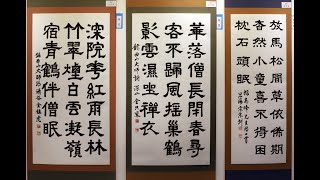 放馬松間草依俙期
杳然小童喜不得困
枕石頭眠
華落僧長閉春尋
客不歸風搖巢鶴
影雲濕坐禪衣
深院花紅雨長林
竹翠煙白雲凝嶺
宿青鶴伴僧眠